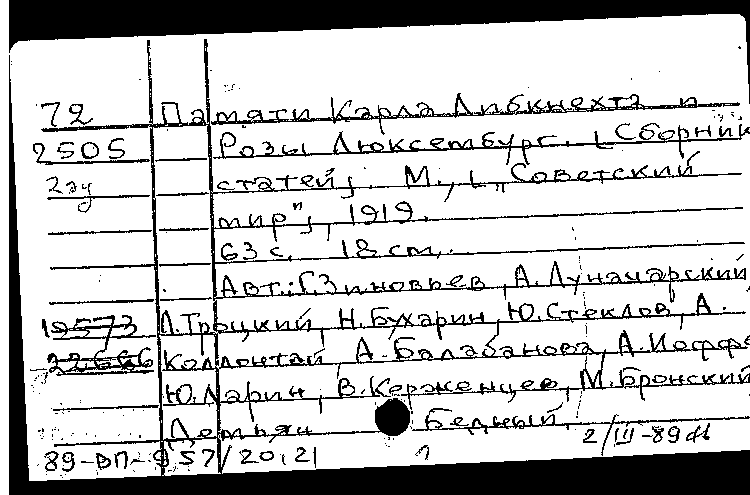 72 Памяти Карла Либкнехта и
2505 Розы Люксембург. [Сборник
2эу статей]. М., [„Советский
мир"], 1919.
63 с. 18 см.
Авт.: Г.Зиновьев, А.Луначарский,
19573 Л.Троцкий, Н.Бухарин, Ю.Стеклов, А.
22666 Коллонтай, А.Балабанова, А.Иоффе,
Ю.Ларин, В.Керженцев, М.Бронский,
Демьян Бедный.
2/III-89
89-ВП-957/20,21 1